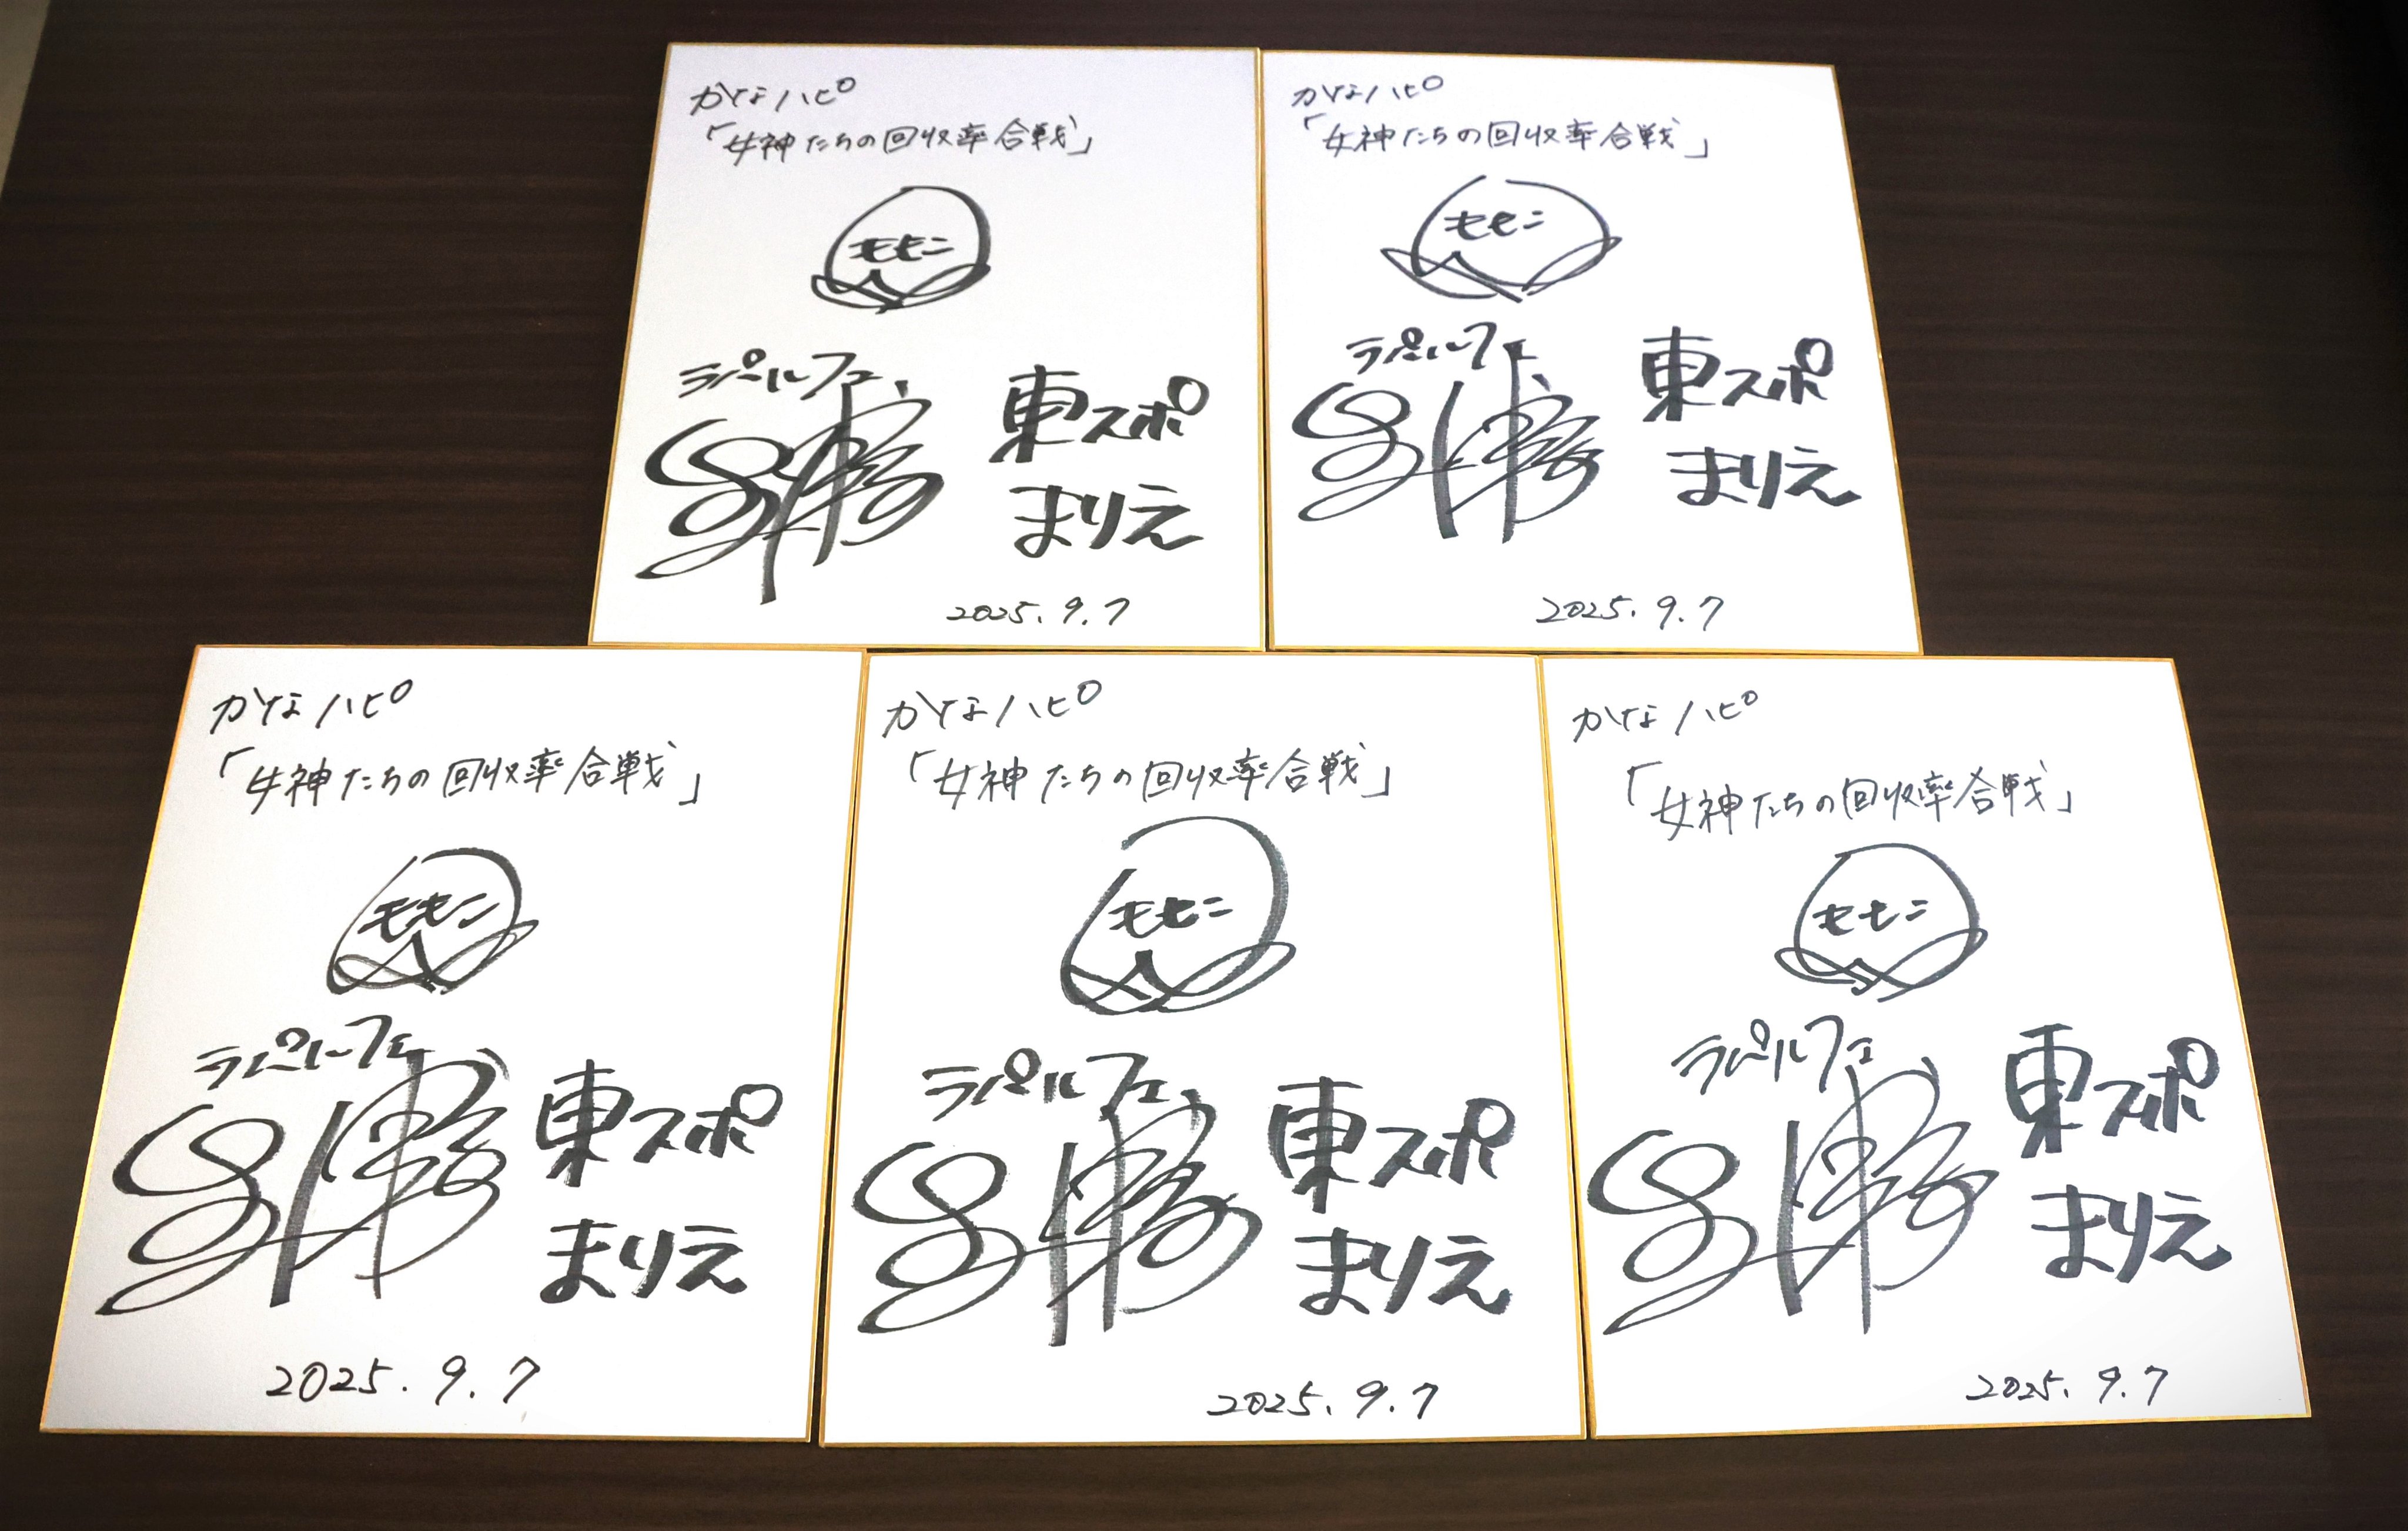 かなハピ
「女神たちの回収率合戦」
モモニ
ラパルフェ
東スポ
まりえ
2025.9.7
かなハピ
「女神たちの回収率合戦」
モモニ
ラパルフェ
東スポ
まりえ
2025.9.7
かなハピ
「女神たちの回収率合戦」
モモニ
ラパルフェ
東スポ
まりえ
2025.9.7
かなハピ
「女神たちの回収率合戦」
モモニ
ラパルフェ
東スポ
まりえ
2025.9.7
かなハピ
「女神たちの回収率合戦」
モモニ
ラパルフェ
東スポ
まりえ
2025.9.7